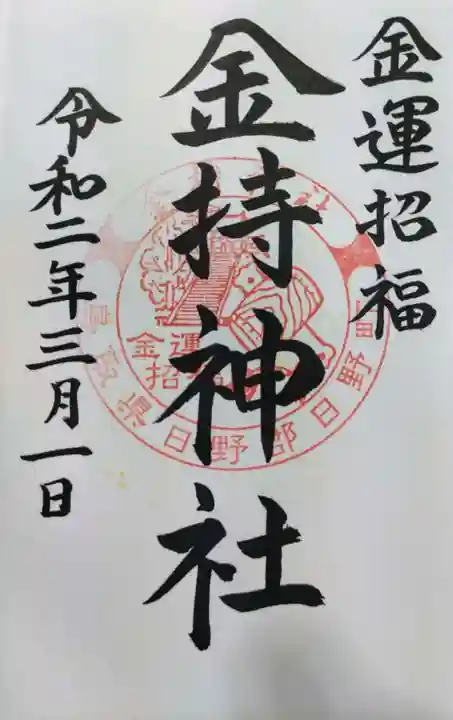 金運招福
金持神社
令和二年三月一日
金運
招福
鳥取県日野郡日野町